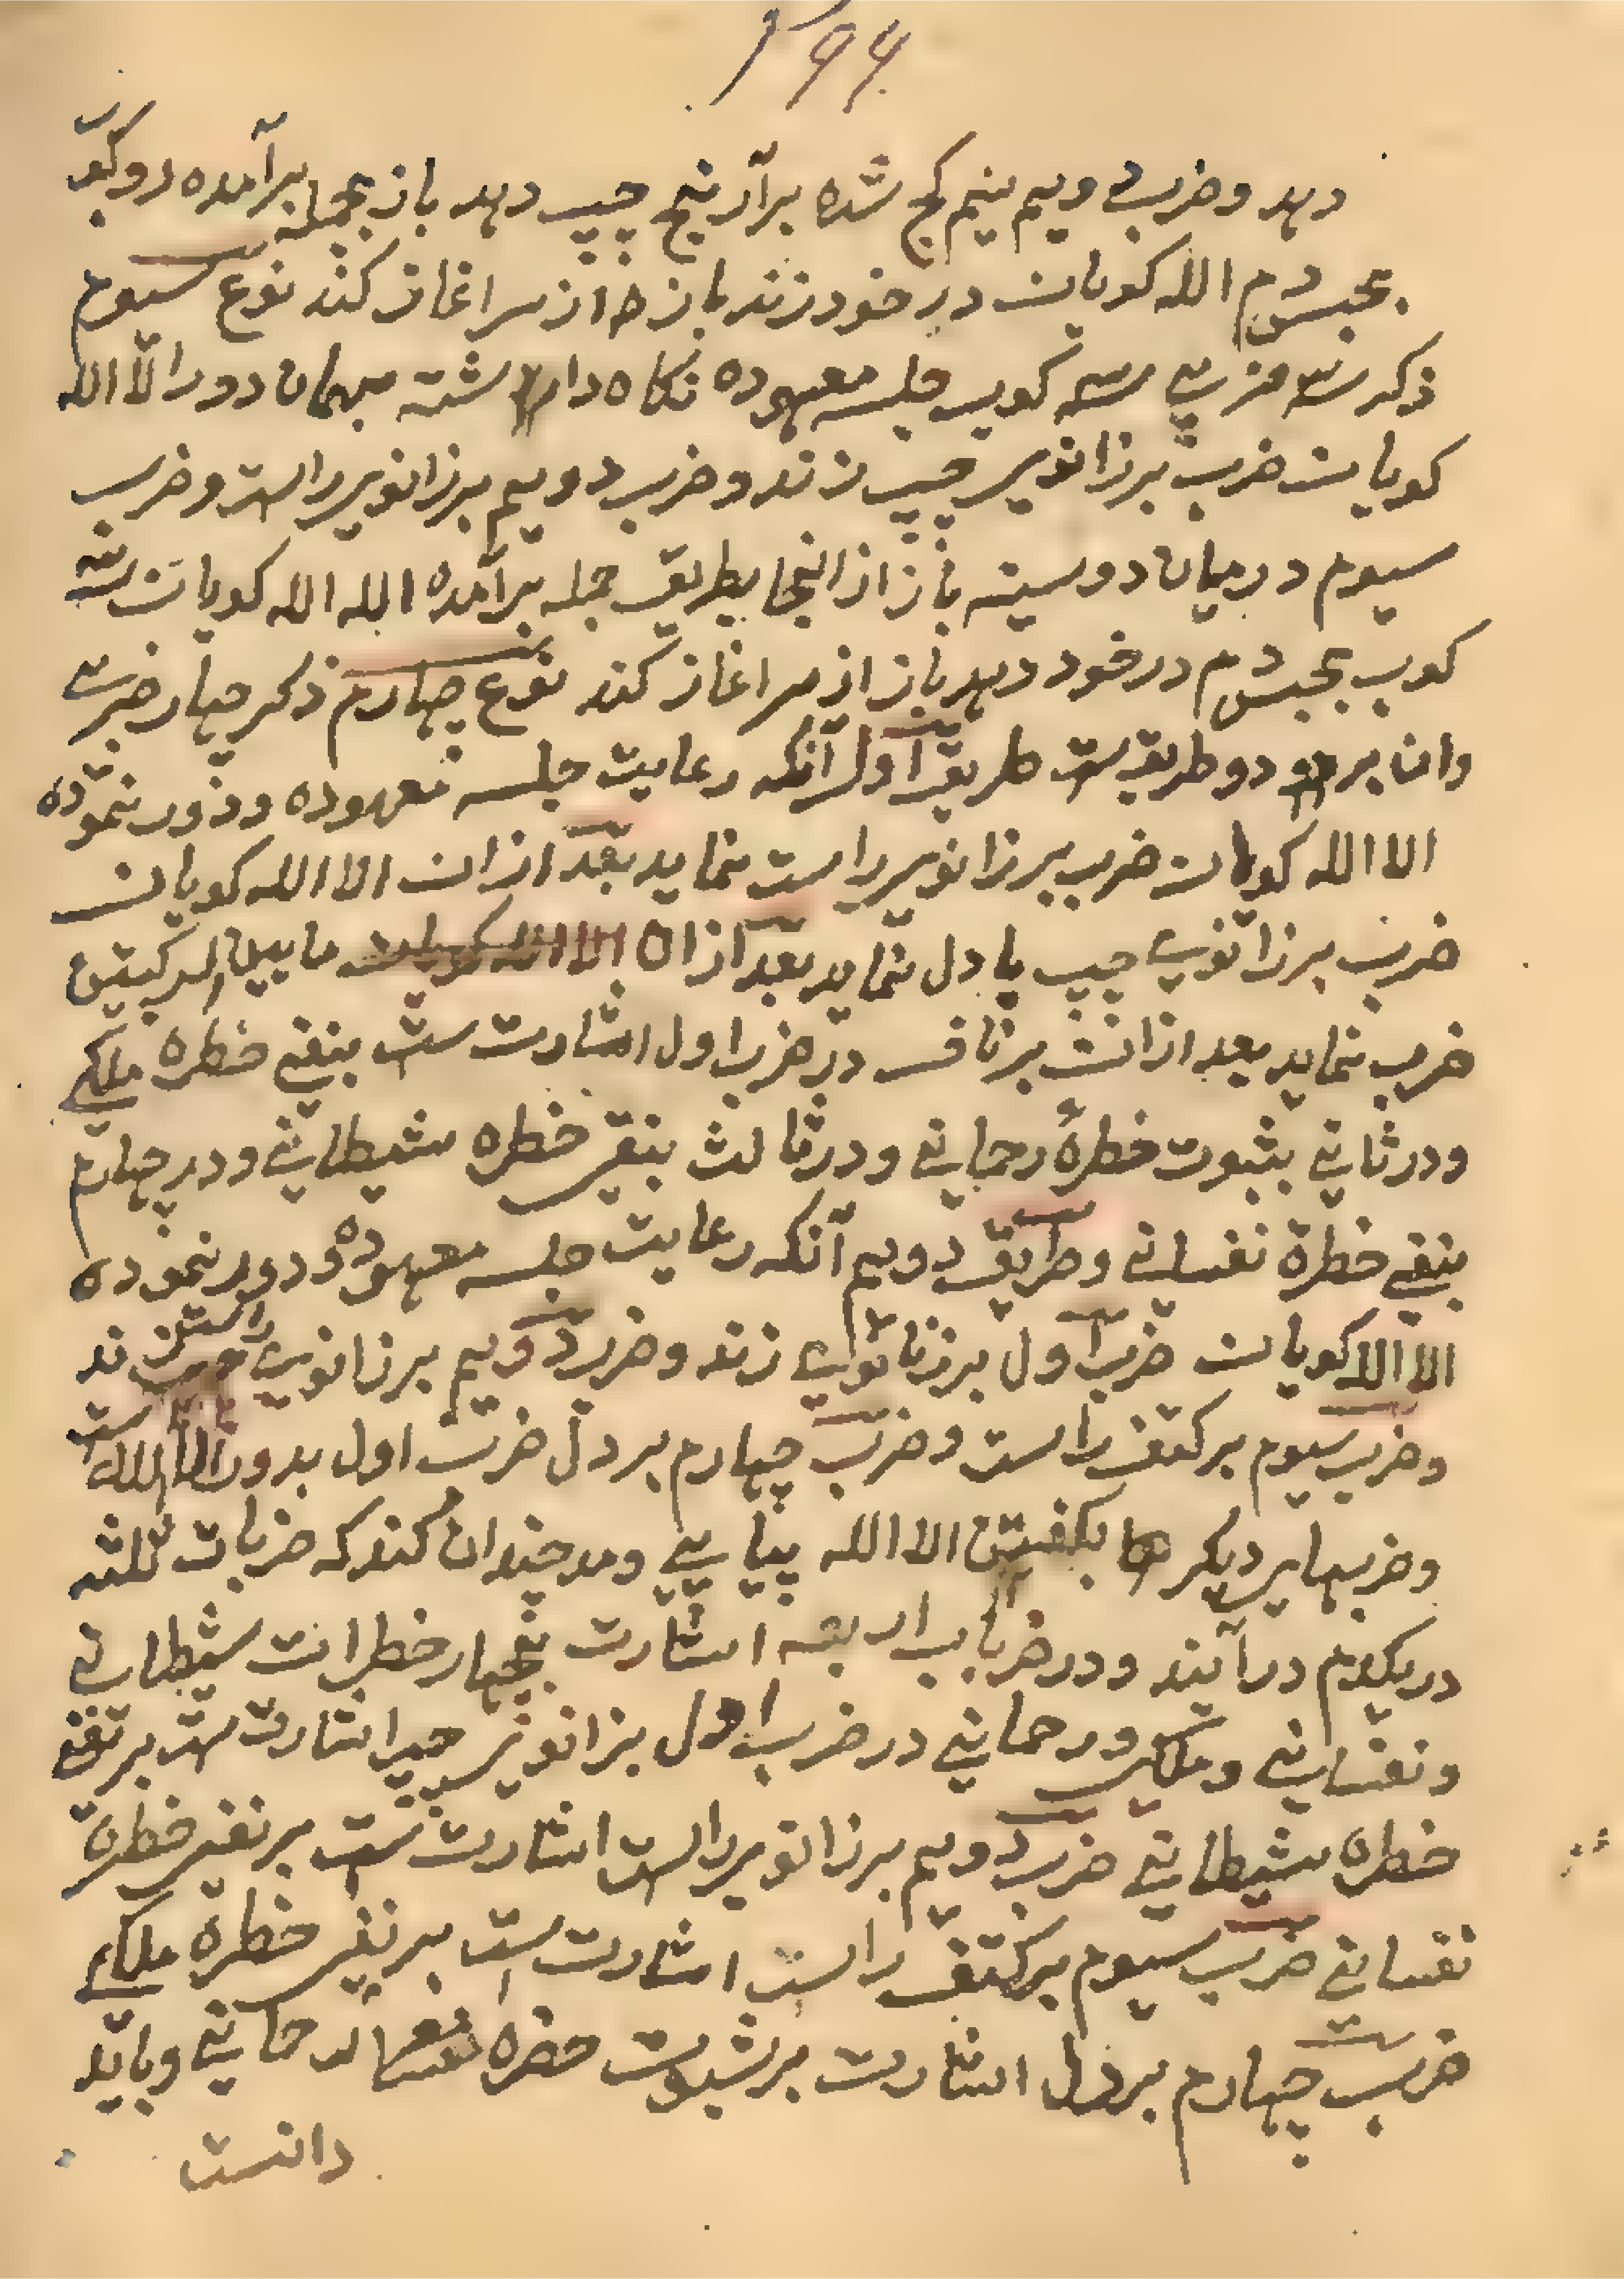 دہد و ضرب دویم نیم کج شدہ بر آرنج چپ دہد باز بجملہ برآمدہ دو کوب
بحبس دم اللہ کویان در خود زند باز ازسر اغاز کند نوع سیوم
ذکر سہ ضربے سہ کوب جلسہ معہودہ نکاہ داشتہ بہمان دور الا اللہ
کویان ضرب برزانوی چپ زند و ضرب دویم برزانوی راست و ضرب
سیوم درمیان دو سینہ باز از انجا بطریق جملہ برآمدہ اللہ اللہ کویان سہ
کوب بحبس دم در خود دہد باز از سر اغاز کند نوع چہارم ذکر چہار ضربے
وان بر دو طریق ست طریق اول آنکہ رعایت جلسہ معہودہ و دور نمودہ
الا اللہ کویان ضرب برزانوی راست نماید بعد ازان الا اللہ کویان
ضرب برزانوی چپ یا دل نماید بعد ازان مابین الرکبتین
ضرب نماید بعد ازان برناف در ضرب اول اشارت ست بنفی خطرہ ملکی
و در ثانی بثبوت خطرۂ رحمانی و در ثالث بنفی خطرہ شیطانی و در چہارم
بنفی خطرۂ نفسانی و طریق دویم آنکہ رعایت جلسہ معہودہ و دور نمودہ
الا اللہ کویان ضرب اول برزانوی زند و ضرب دویم برزانوی راست زند
و ضرب سیوم برکتف راست و ضرب چہارم بر دل ضرب اول بدور الا اللہ ست
و ضربہای دیکر بکفتن الا اللہ پیاپی و مد چندان کند کہ ضربات ثلثہ
در یکدم درآیند و در ضربات اربعہ اشارت بچہار خطرات شیطانی
و نفسانی و ملکی و رحمانی در ضرب اول بزانوی چپ اشارت ست برنفی
خطرہ شیطانی ضرب دویم برزانوی راست اشارت ست برنفی خطرۂ
نفسانی ضرب سیوم برکتف راست اشارت ست برنفی خطرۂ ملکی
ضرب چہارم بر دل اشارت برثبوت خطرہ رحمانی و باید
دانست